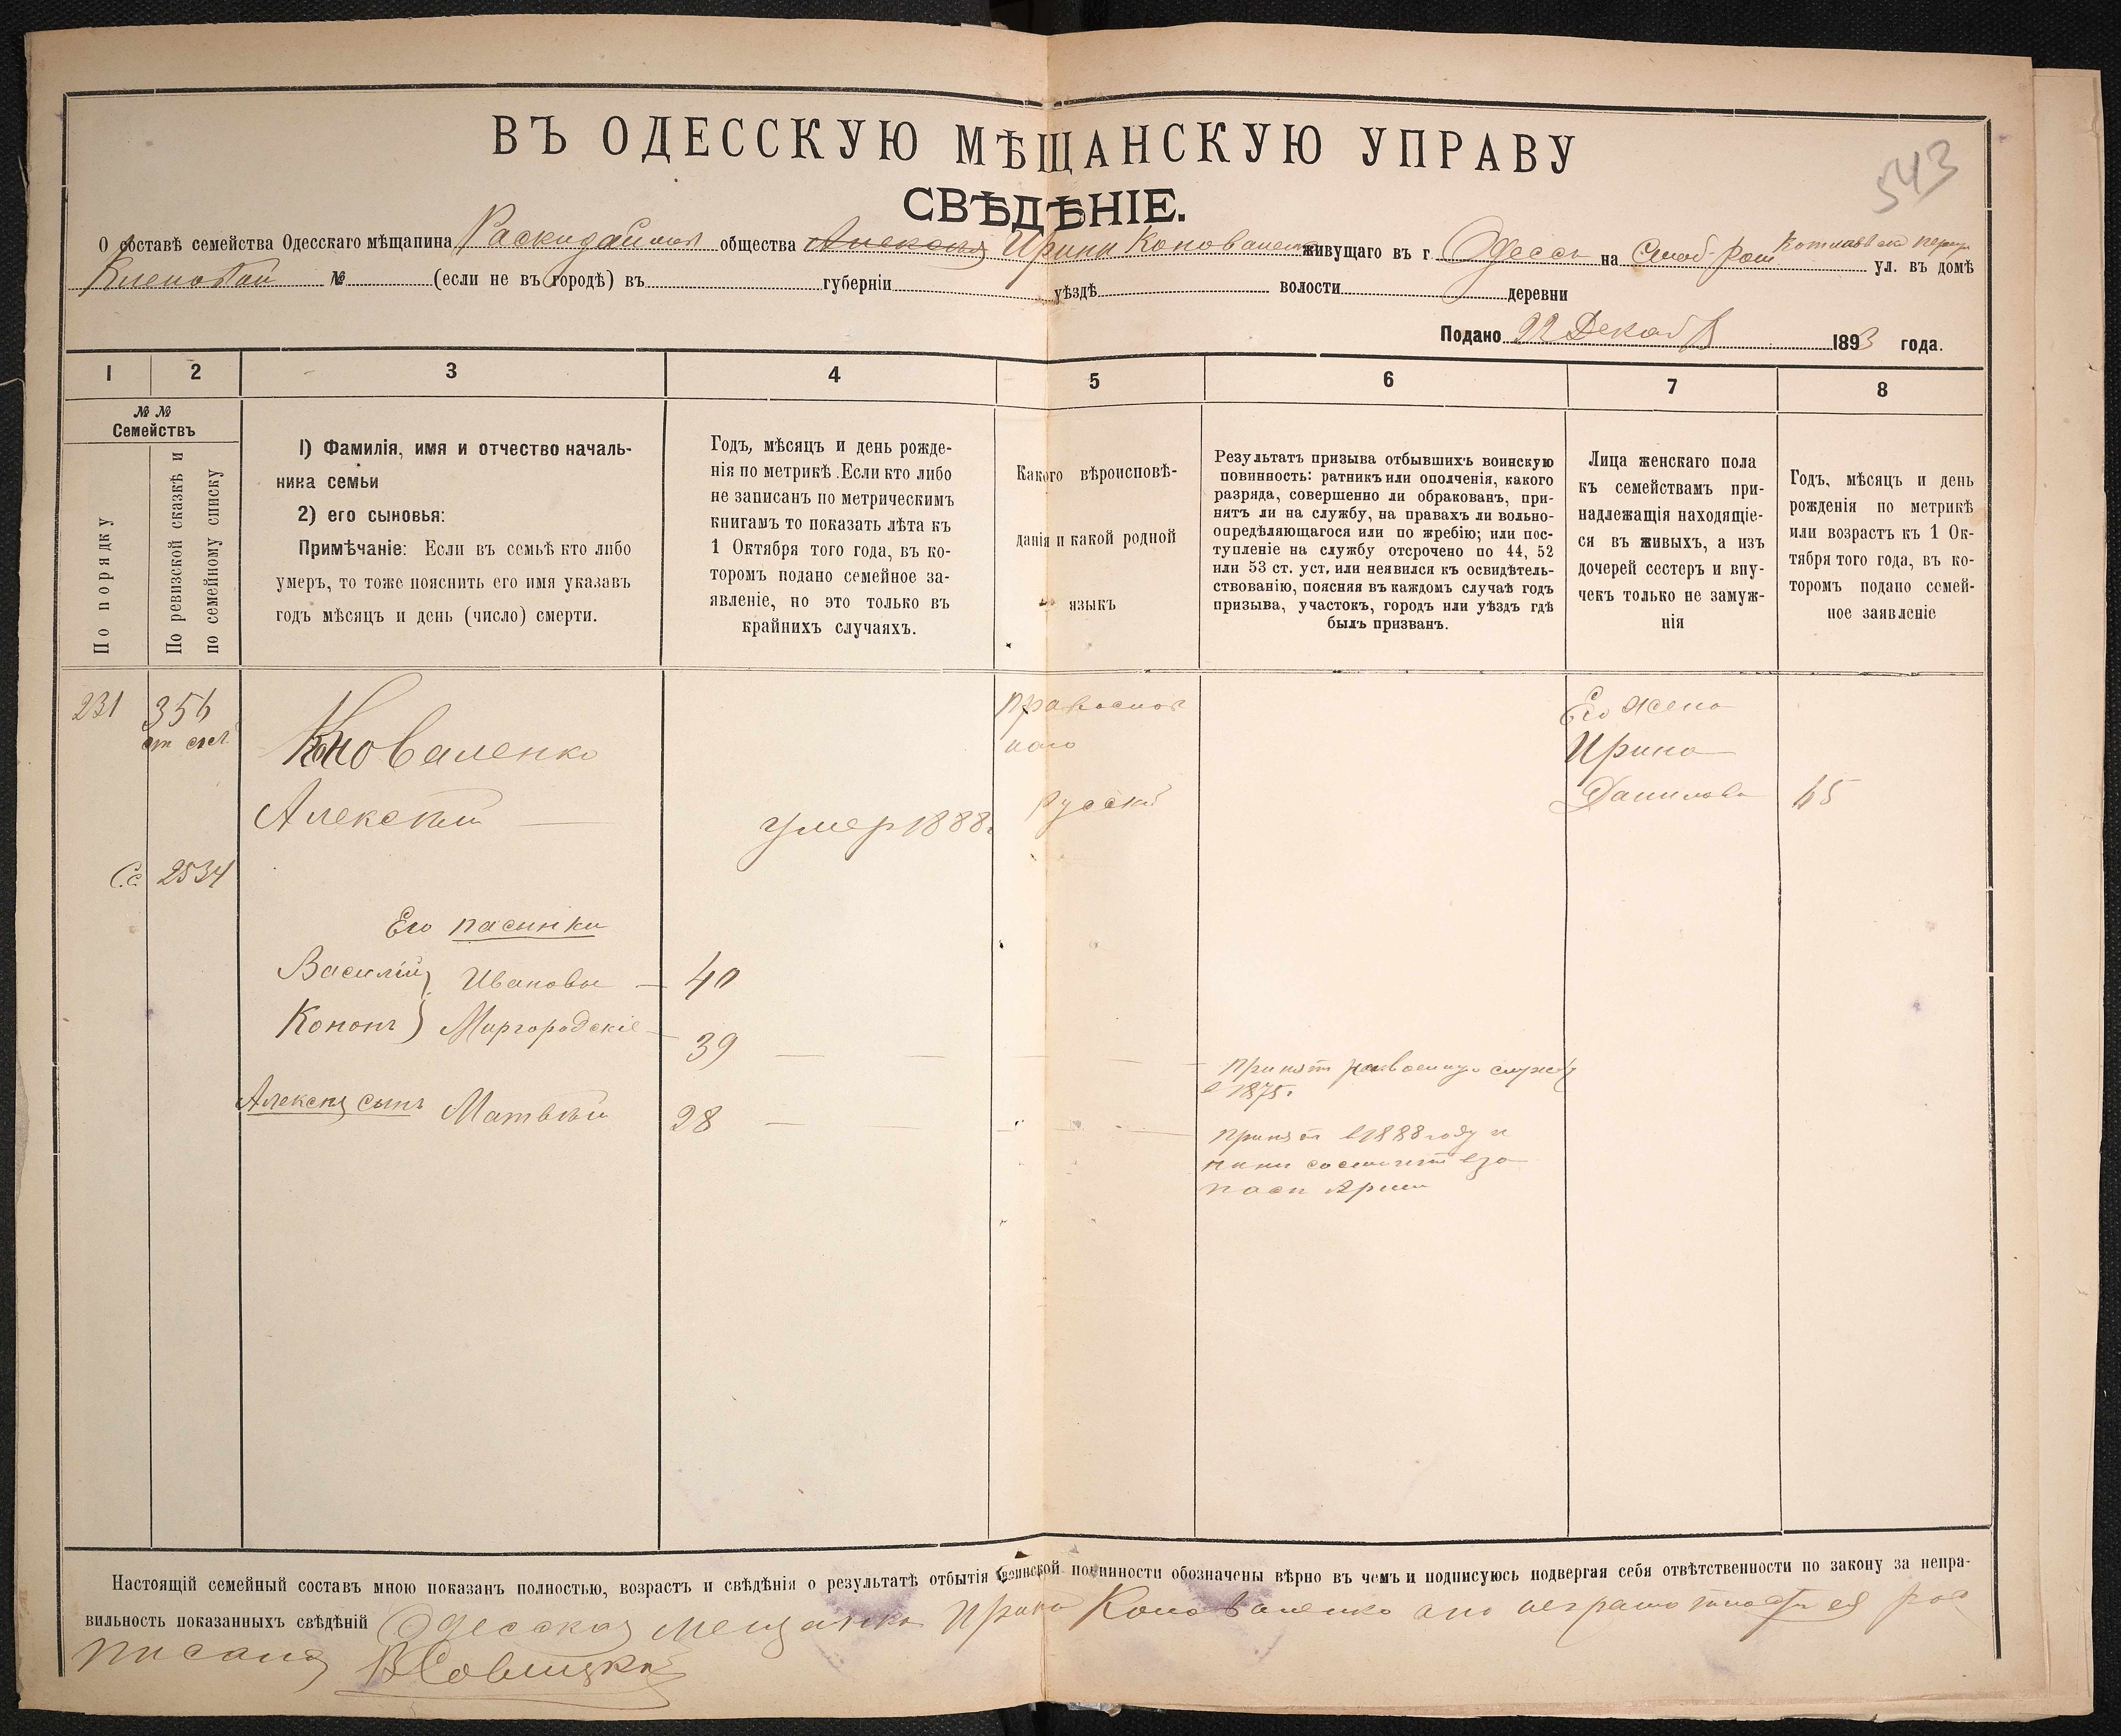 ВЪ ОДЕССКУЮ МѢЩАНСКУЮ УПРАВУ
543
СВѢДѢНІЕ.
О составѣ семейства Одесскаго мѣщанина общества Ирины Коноваленко живущаго въ г. Одессѣ на Слоб-Ром ул. въ домѣ
№ (если не въ городѣ) въ губерніи уѣздѣ волости деревни
Подано 22 Декаб 1893 года.
1 2 3 4 5 6 7 8
№ №
Семействъ
По порядку
По ревизской сказкѣ и
по семейному списку
1) Фамилія, имя и отчество началь-
ника семьи
2) его сыновья:
Примѣчаніе: Если въ семьѣ кто либо
умеръ, то тоже пояснить его имя указавъ
годъ мѣсяцъ и день (число) смерти.
Годъ, мѣсяцъ и день рожде-
нія по метрикѣ. Если кто либо
не записанъ по метрическимъ
книгамъ то показать лѣта къ
1 Октября того года, въ ко-
торомъ подано семейное за-
явленіе, но это только въ
крайнихъ случаяхъ.
Какого вѣроисповѣ-
данія и какой родной
языкъ
Результатъ призыва отбывшихъ воинскую
повинность: ратникъ или ополченія, какого
разряда, совершенно ли обракованъ, при-
нятъ ли на службу, на правахъ ли вольно-
опредѣляющагося или по жребію; или пос-
тупленіе на службу отсрочено по 44, 52
или 53 ст. уст. или неявился къ освидѣтель-
ствованію, поясняя въ каждомъ случаѣ годъ
призыва, участокъ, городъ или уѣздъ гдѣ
былъ призванъ.
Лица женскаго пола
къ семействамъ при-
надлежащія находящіе-
ся въ живыхъ, а изъ
дочерей сестеръ и вну-
чекъ только не замуж-
нія
Годъ, мѣсяцъ и день
рожденія по метрикѣ
или возрастъ къ 1 Ок-
тября того года, въ ко-
торомъ подано семей-
ное заявленіе
231 356
Коноваленко
Алексѣй — умер 1888г
православ
наго
русскій
Его жена
Ирина
Данилова 65
С.с. 2534
Его пасынки
Василій } Ивановы — 40
Кононъ } Миргородскіе — 39
принят на военную служб
в 1875г
Алексѣя сынъ Матвѣй 28
принят в 1888 году и
ныне состоит в за
пасе Арміи
Настоящій семейный составъ мною показанъ полностью, возрастъ и свѣдѣнія о результатѣ отбытія воинской повинности обозначены вѣрно въ чемъ и подписуюсь подвергая себя отвѣтственности по закону за непра-
вильность показанныхъ свѣдѣній Одесская мещанка Ирина Коноваленко а по неграмотности ея рос
писался